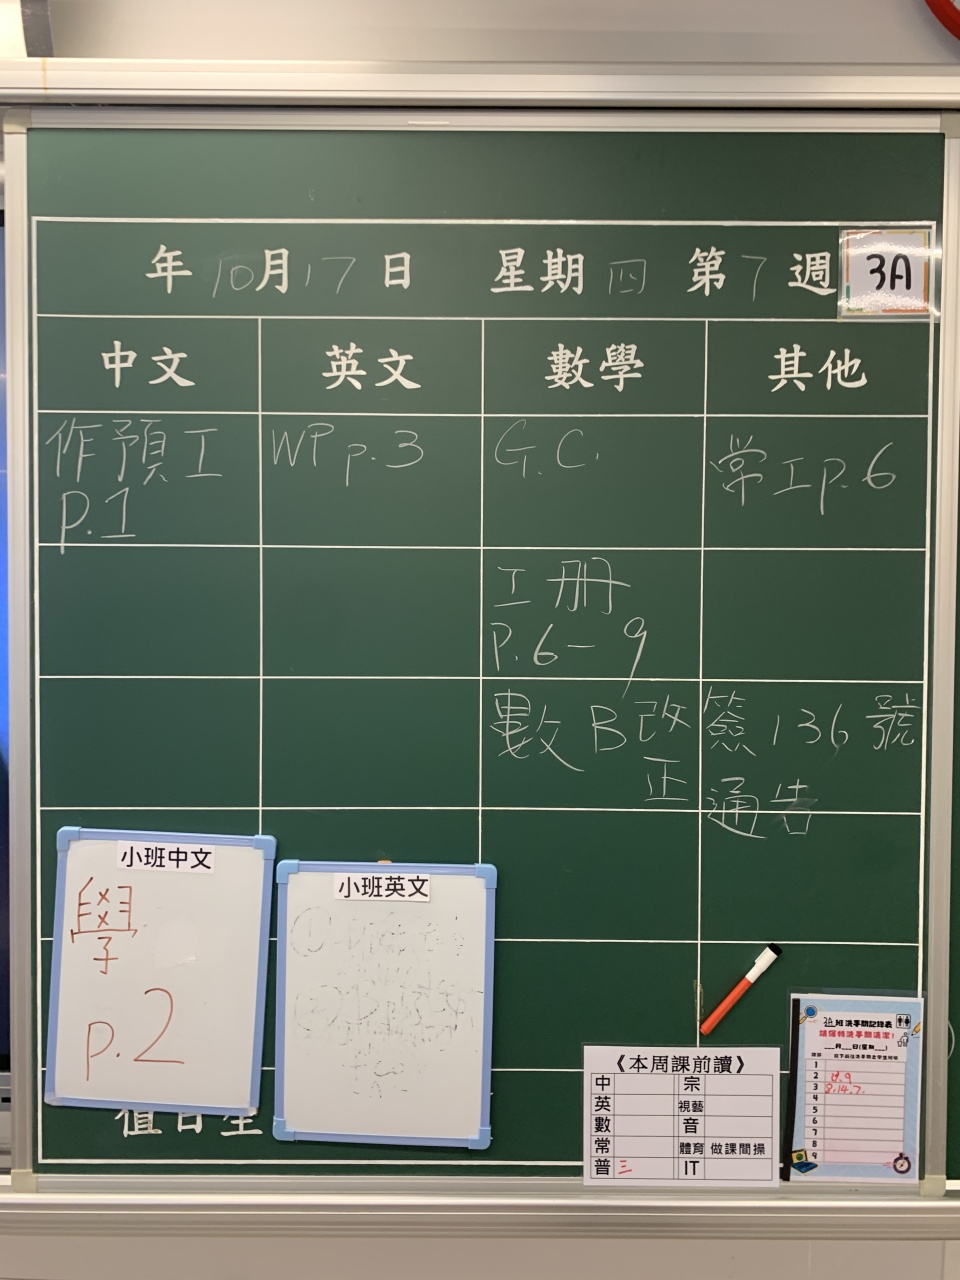 年10月17日 星期四 第7週 3A
中文 英文 數學 其他
作預工
p.1
WP p.3
G.C.
常工p.6
工冊
P.6-9
數B改
正
簽136號
通告
小班中文
學
p.2
小班英文
①
②
值日生
《本周課前讀》
中 宗
英 視藝
數 音
常 體育 做課間操
普 三 IT
3A班洗手間記錄表
請保持洗手間清潔!
___月___日(星期___)
1
2 8.9
3 8.14.7.
4
5
6
7
8
9